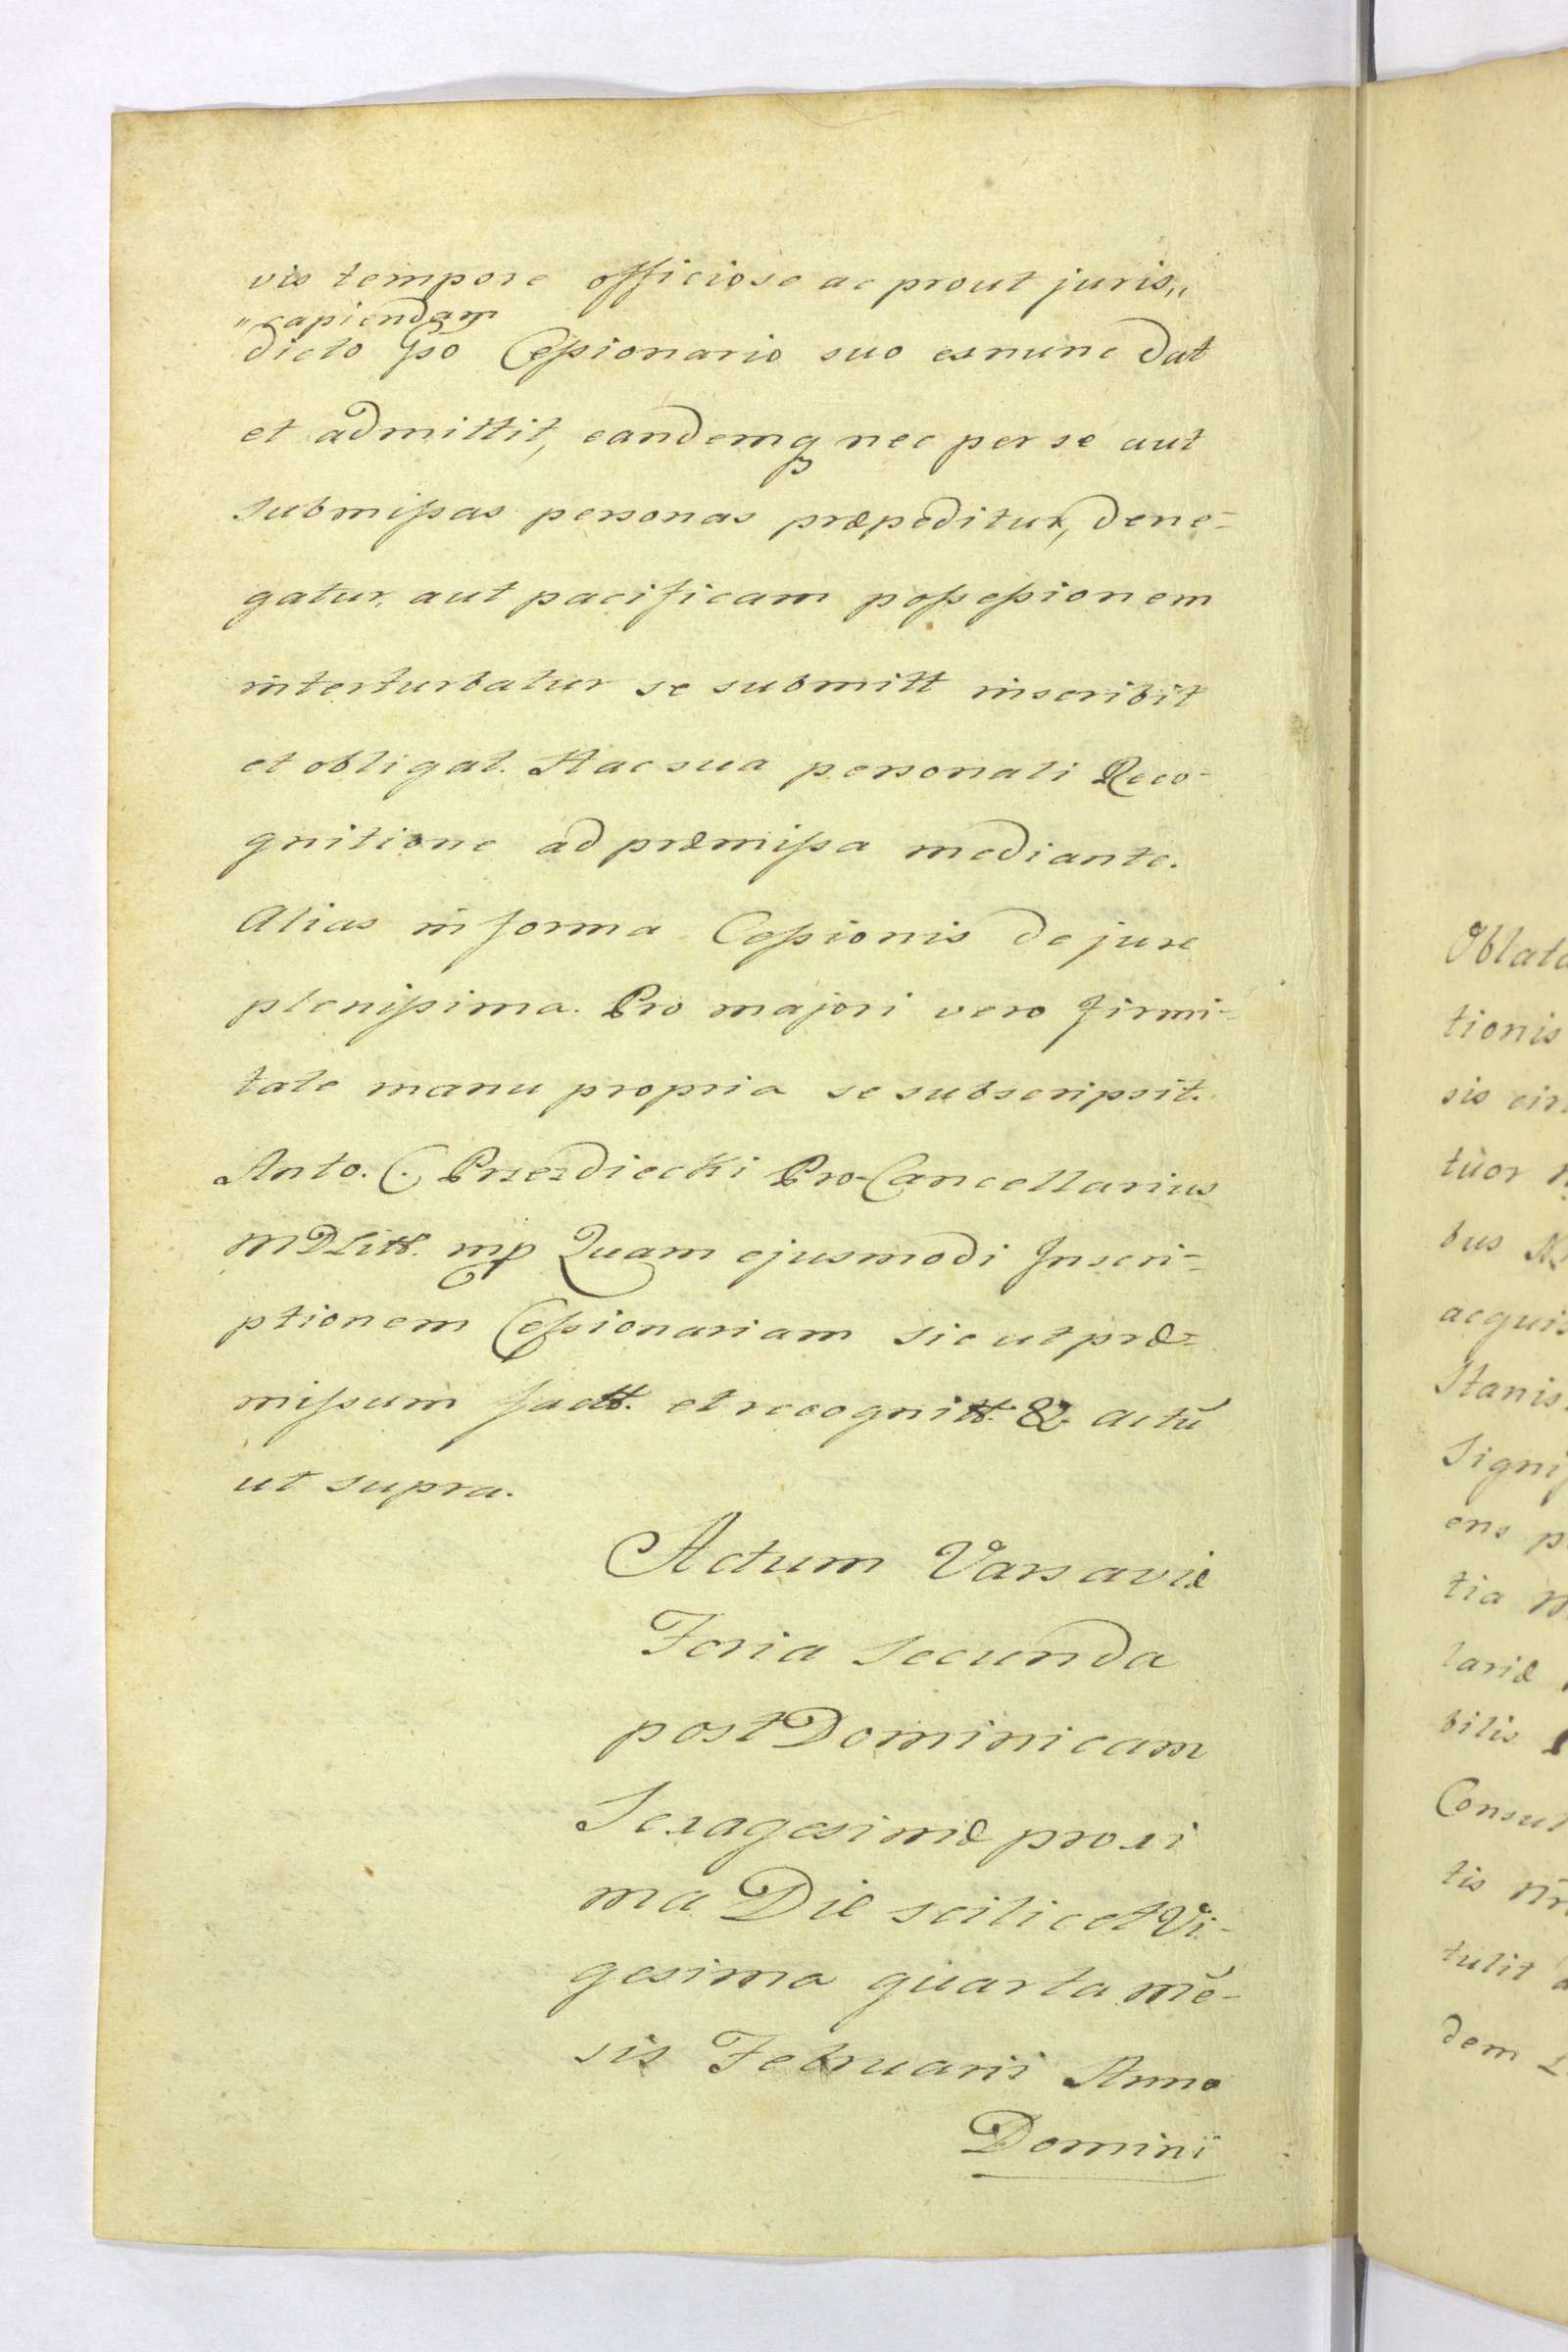 vis tempore officiose ac prout juris„
„capiendam
dicto Gso Cessionario suo exnunc dat
et admittit, eandemq nec per se aut
submissas personas præpeditur, dene-
gatur, aut pacificam possessionem
interturbatur se submitt inscribit
et obligat. Hac sua personali Reco-
gnitione ad præmissa mediante.
Alias in forma Cessionis de jure
plenissima. Pro majori vero firmi-
tate manu propria se subscripsit.
Anto. C. Przezdiecki Pro-Cancellarius
MDLitt. mp Quam ejusmodi Inscri-
ptionem Cessionariam sic ut præ-
missum factt. et recognitt. &c actũ
ut supra.
Actum Varsaviæ
Feria Secunda
post Dominicam
Sexagesimæ proxi
ma Die scilicet Vi-
gesima quarta mẽ-
sis Februarii Anno
Domini
Oblata
tionis
sis
tuor
bus
acquis
Stanis
Signif
ens p
tia
lariæ
bilis
Consul
tis
tulit
dem